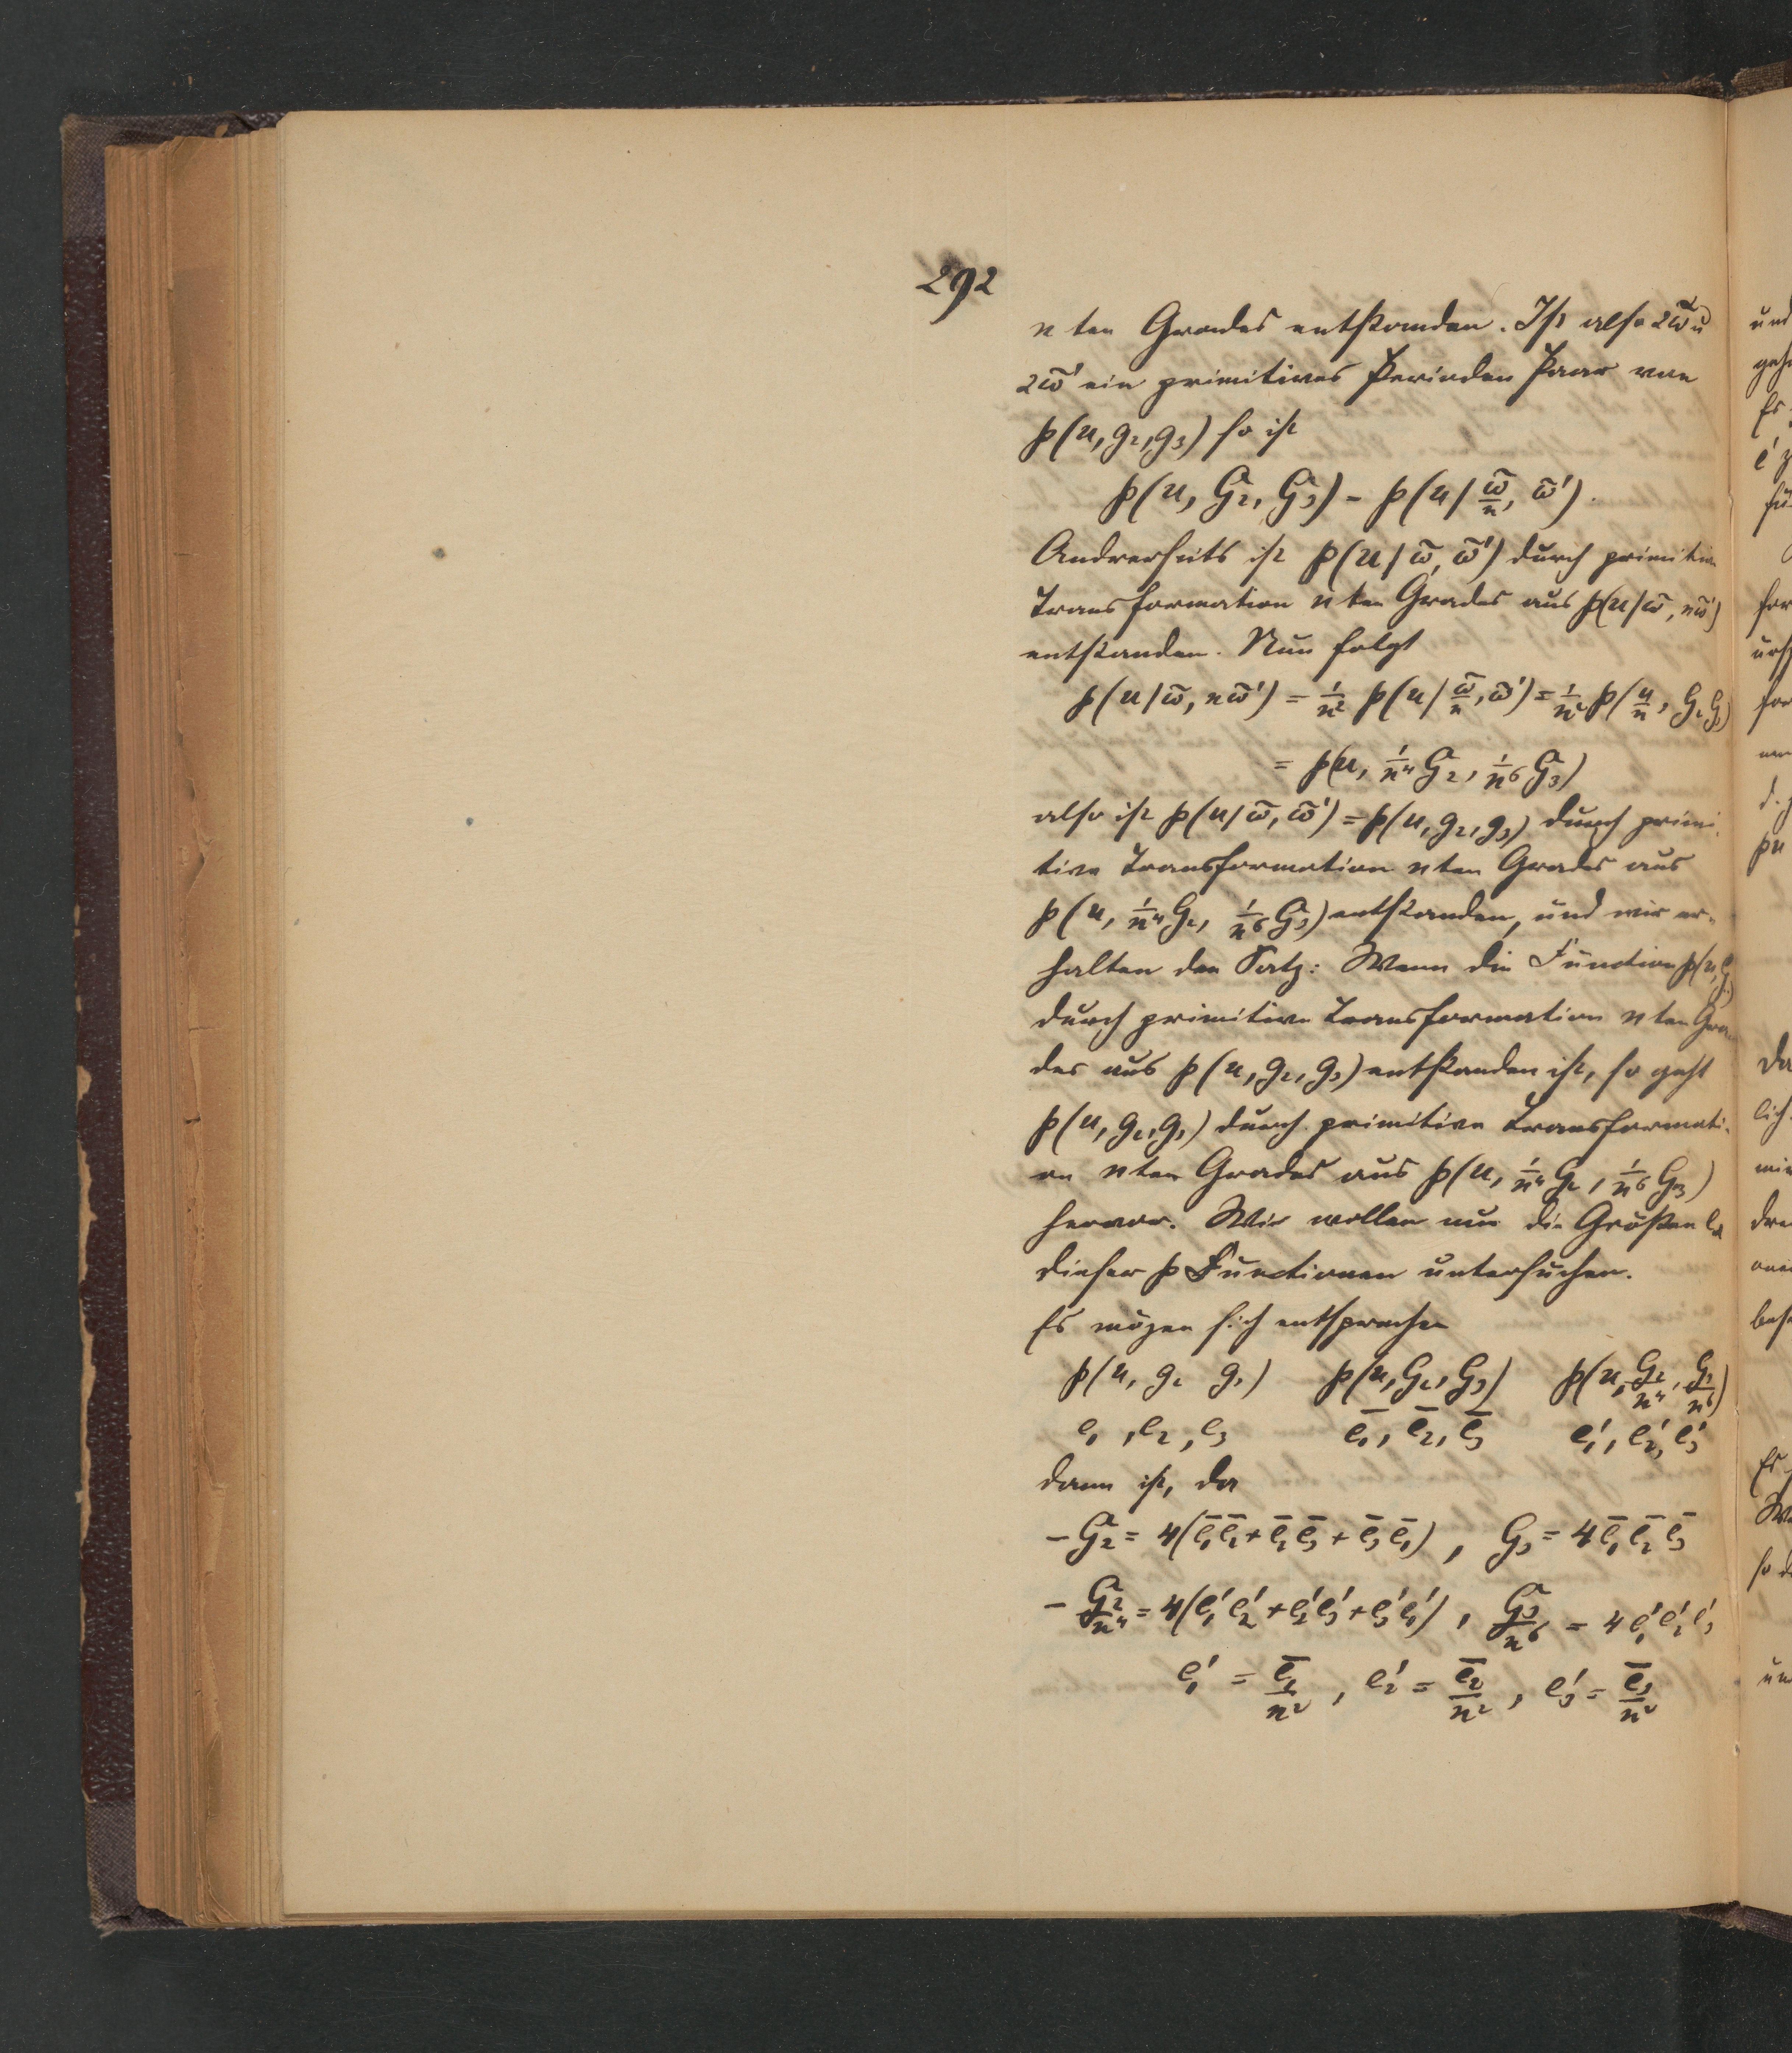 292
n ten Grades entstanden. Ist also 2ω̃ u
2ω̃' ein primitives Perioden Paar von
℘(u, g₂, g₃) so ist
℘(u, G₂, G₃) = ℘(u / ω̃/n, ω̃').
Andrerseits ist ℘(u/ω̃, ω̃') durch primitive
Transformation n ten Grades aus ℘(u/ω̃, nω̃')
entstanden. Nun folgt
℘(u/ω̃, nω̃') = 1/n² ℘(u / ω̃/n, ω̃') = 1/n² ℘(u/n, G₂ G₃)
= ℘(u, 1/n⁴ G₂, 1/n⁶ G₃)
also ist ℘(u/ω̃, ω̃') = ℘(u, g₂, g₃) durch primi
tive Transformation nten Grades aus
℘(u, 1/n⁴ G₂, 1/n⁶ G₃) entstanden, und wir er-
halten den Satz: Wenn die Function ℘(u, G.)
durch primitive Transformation n ten Gra
des aus ℘(u, g₂, g₃) entstanden ist, so geht
℘(u, g₂, g₃) durch primitive Transformati-
on nten Grades aus ℘(u, 1/n⁴ G₂, 1/n⁶ G₃)
hervor. Wir wollen nun die Größen e
dieser ℘ Functionen untersuchen.
Es mögen sich entsprechen
℘(u, g₂ g₃) ℘(u, G₂, G₃) ℘(u, G₂/n⁴, G₃/n⁶)
e₁, e₂, e₃ ē₁, ē₂, ē₃ e₁', e₂', e₃'
dann ist, da
-G₂ = 4(ē₁ē₂ + ē₂ē₃ + ē₃ē₁), G₃ = 4ē₁ē₂ē₃
-G₂/n⁴ = 4(e₁'e₂' + e₂'e₃' + e₃'e₁'), G₃/n⁶ = 4e₁'e₂'e₃'
e₁' = ē₁/n², e₂' = ē₂/n², e₃' = ē₃/n²